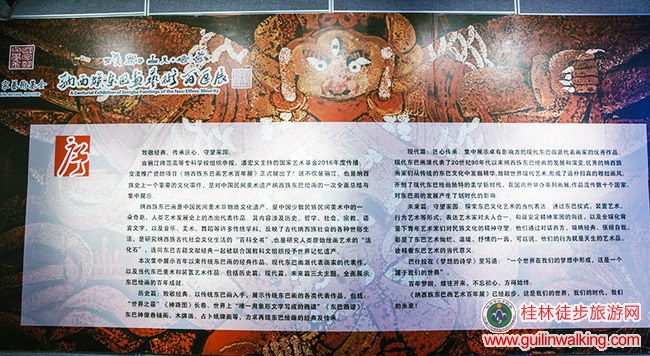 家艺术基金
纳西族东巴画艺术百年展
A Centurial Exhibition of Dongba Paintings of the Naxi Ethnic Minority
序
致敬经典、传承匠心、守望家园:
由丽江师范高等专科学校组织申报、潘宏义主持的国家艺术基金2016年度传播
交流推广资助项目《纳西族东巴画艺术百年展》正式展出了!这不仅是丽江,也是纳西
族史上一个重要的文化事件,是对中国民间美术遗产纳西族东巴绘画的一次全面总结与
集中展示。
纳西族东巴画是中国民间美术非物质文化遗产,是中国少数民族民间美术中的一
朵奇葩,人类艺术发展史上的杰出代表作品,其内容涉及历史、哲学、社会、宗教、语
言文字,以及音乐、美术、舞蹈等许多传统学科,反映了古代纳西族社会的各种世俗生
活,是研究纳西族古代社会文化生活的“百科全书”,也是研究人类原始绘画艺术的“活
化石”,连同东巴古籍文献经典一起被联合国教科文组织授予世界记忆遗产。
本次集中展示百年以来传统东巴绘画的经典作品,现代东巴画派代表画家的代表作,
以及当代东巴美术和装置艺术作品,包括历史篇、现代篇、未来篇三大主题,全面展示
东巴绘画的百年成就。
历史篇:致敬经典,以传统东巴画入手,展示传统东巴画的各类代表作品,包括:
“世界之最”《神路图》长卷、世界上“唯一用象形文字写成的画谱”《东巴画谱》
东巴神像卷轴画、木牌画、占卜纸牌画等,力求再现东巴绘画的经典及传承。
现代篇:匠心传承,集中展示卓有影响力的现代东巴画派代表画家的优秀作品,
现代东巴画派代表了20世纪90年代以来纳西族东巴绘画的发展和演变,优秀的纳西族
画家们从传统的东巴文化中发掘精华,放眼世界现代艺术,形成了追朴归真的稚拙画风,
开创了现代东巴绘画独特的美学新时代,在国内外举办系列画展,作品流传数十个国家,
对东巴画的发展产生了划时代的影响。
未来篇:守望家园,探索东巴文化艺术的当代表达,通过东巴仪式、装置艺术、
行为艺术等形式,表达艺术家对天人合一、和谐安定精神家园的向往,以及全球化背
景下青年艺术家们对民族文化的精神守望,他们通过对话西方、缅纳经典、张扬自我,
彰显了东巴艺术灿烂、温暖、抒情的一面,可以说,他们的行为就是天生的艺术品,
诠释着东巴艺术的当代意义。
巴什拉在《梦想的诗学》里写道:“一个世界在我们的梦想中形成,这是一个
属于我们的世界”
百年梦回,继往开来,不忘初心,方得始终。
《纳西族东巴画艺术百年展》已经起步,这是我们的世界,我们的时代,我们
的未来!
桂林徒步旅游网
www.guilinwalking.com